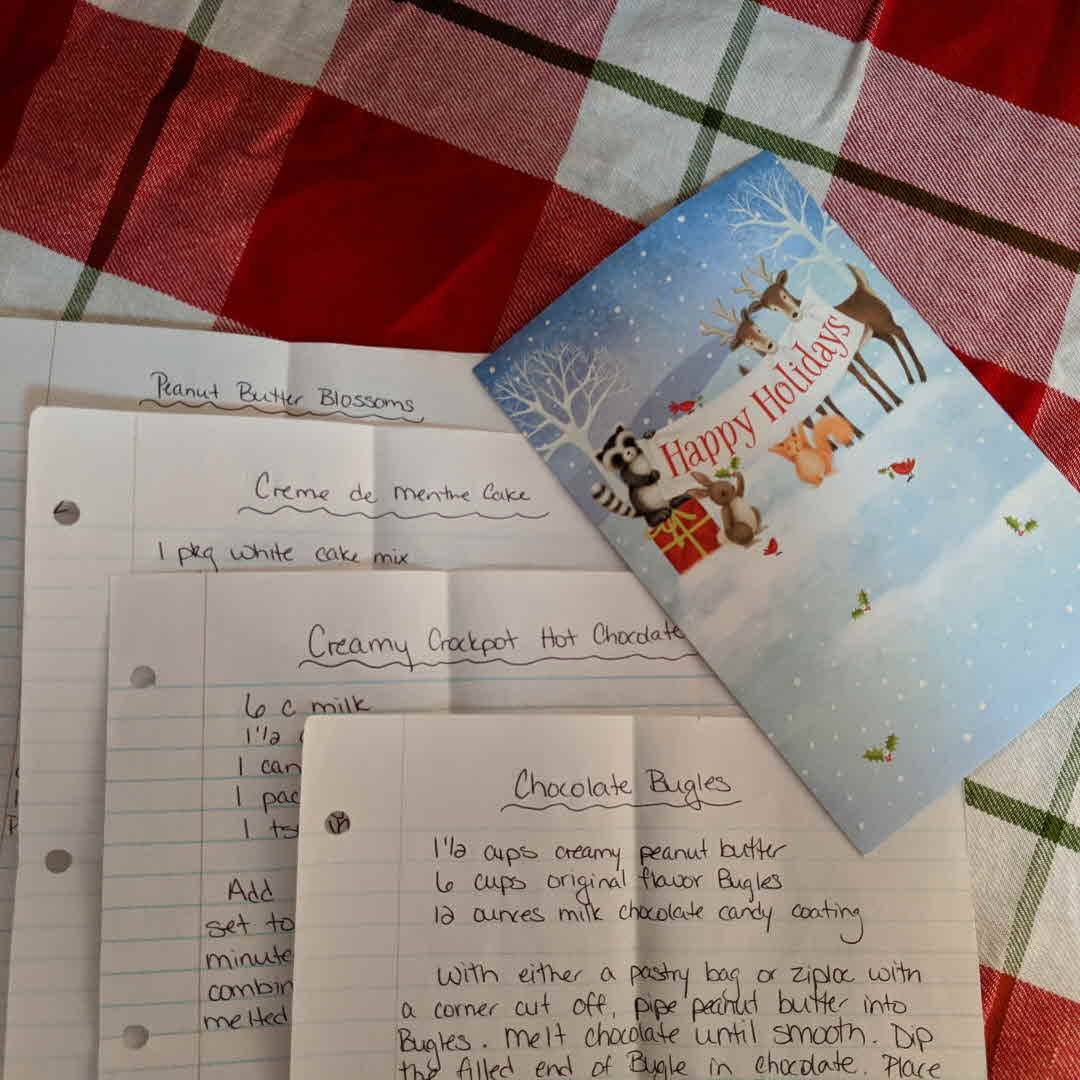 Happy Holidays
Peanut Butter Blossoms
Creme de menthe Cake
1 pkg white cake mix
Creamy Crockpot Hot Chocolate
6 c milk
1 1/2
1 can
1 pac
1 ts
Add
set to
minute
combin
melted
Chocolate Bugles
1 1/2 cups creamy peanut butter
6 cups original flavor Bugles
12 ounces milk chocolate candy coating
With either a pastry bag or ziploc with
a corner cut off, pipe peanut butter into
Bugles. Melt chocolate until smooth. Dip
the filled end of Bugle in chocolate. Place